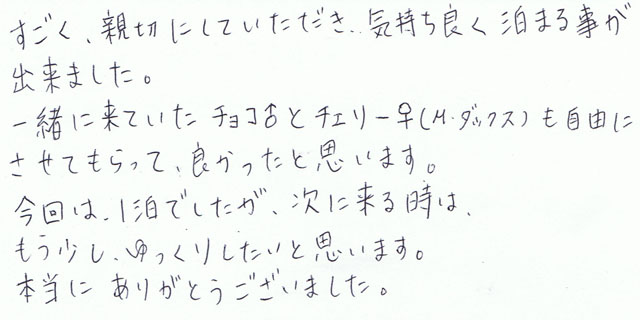 すごく、親切にしていただき、気持ち良く泊まる事が
出来ました。
一緒に来ていたチョコ♂とチェリー♀(M・ダックス)も自由に
させてもらって、良かったと思います。
今回は、1泊でしたが、次に来る時は、
もう少し、ゆっくりしたいと思います。
本当にありがとうございました。